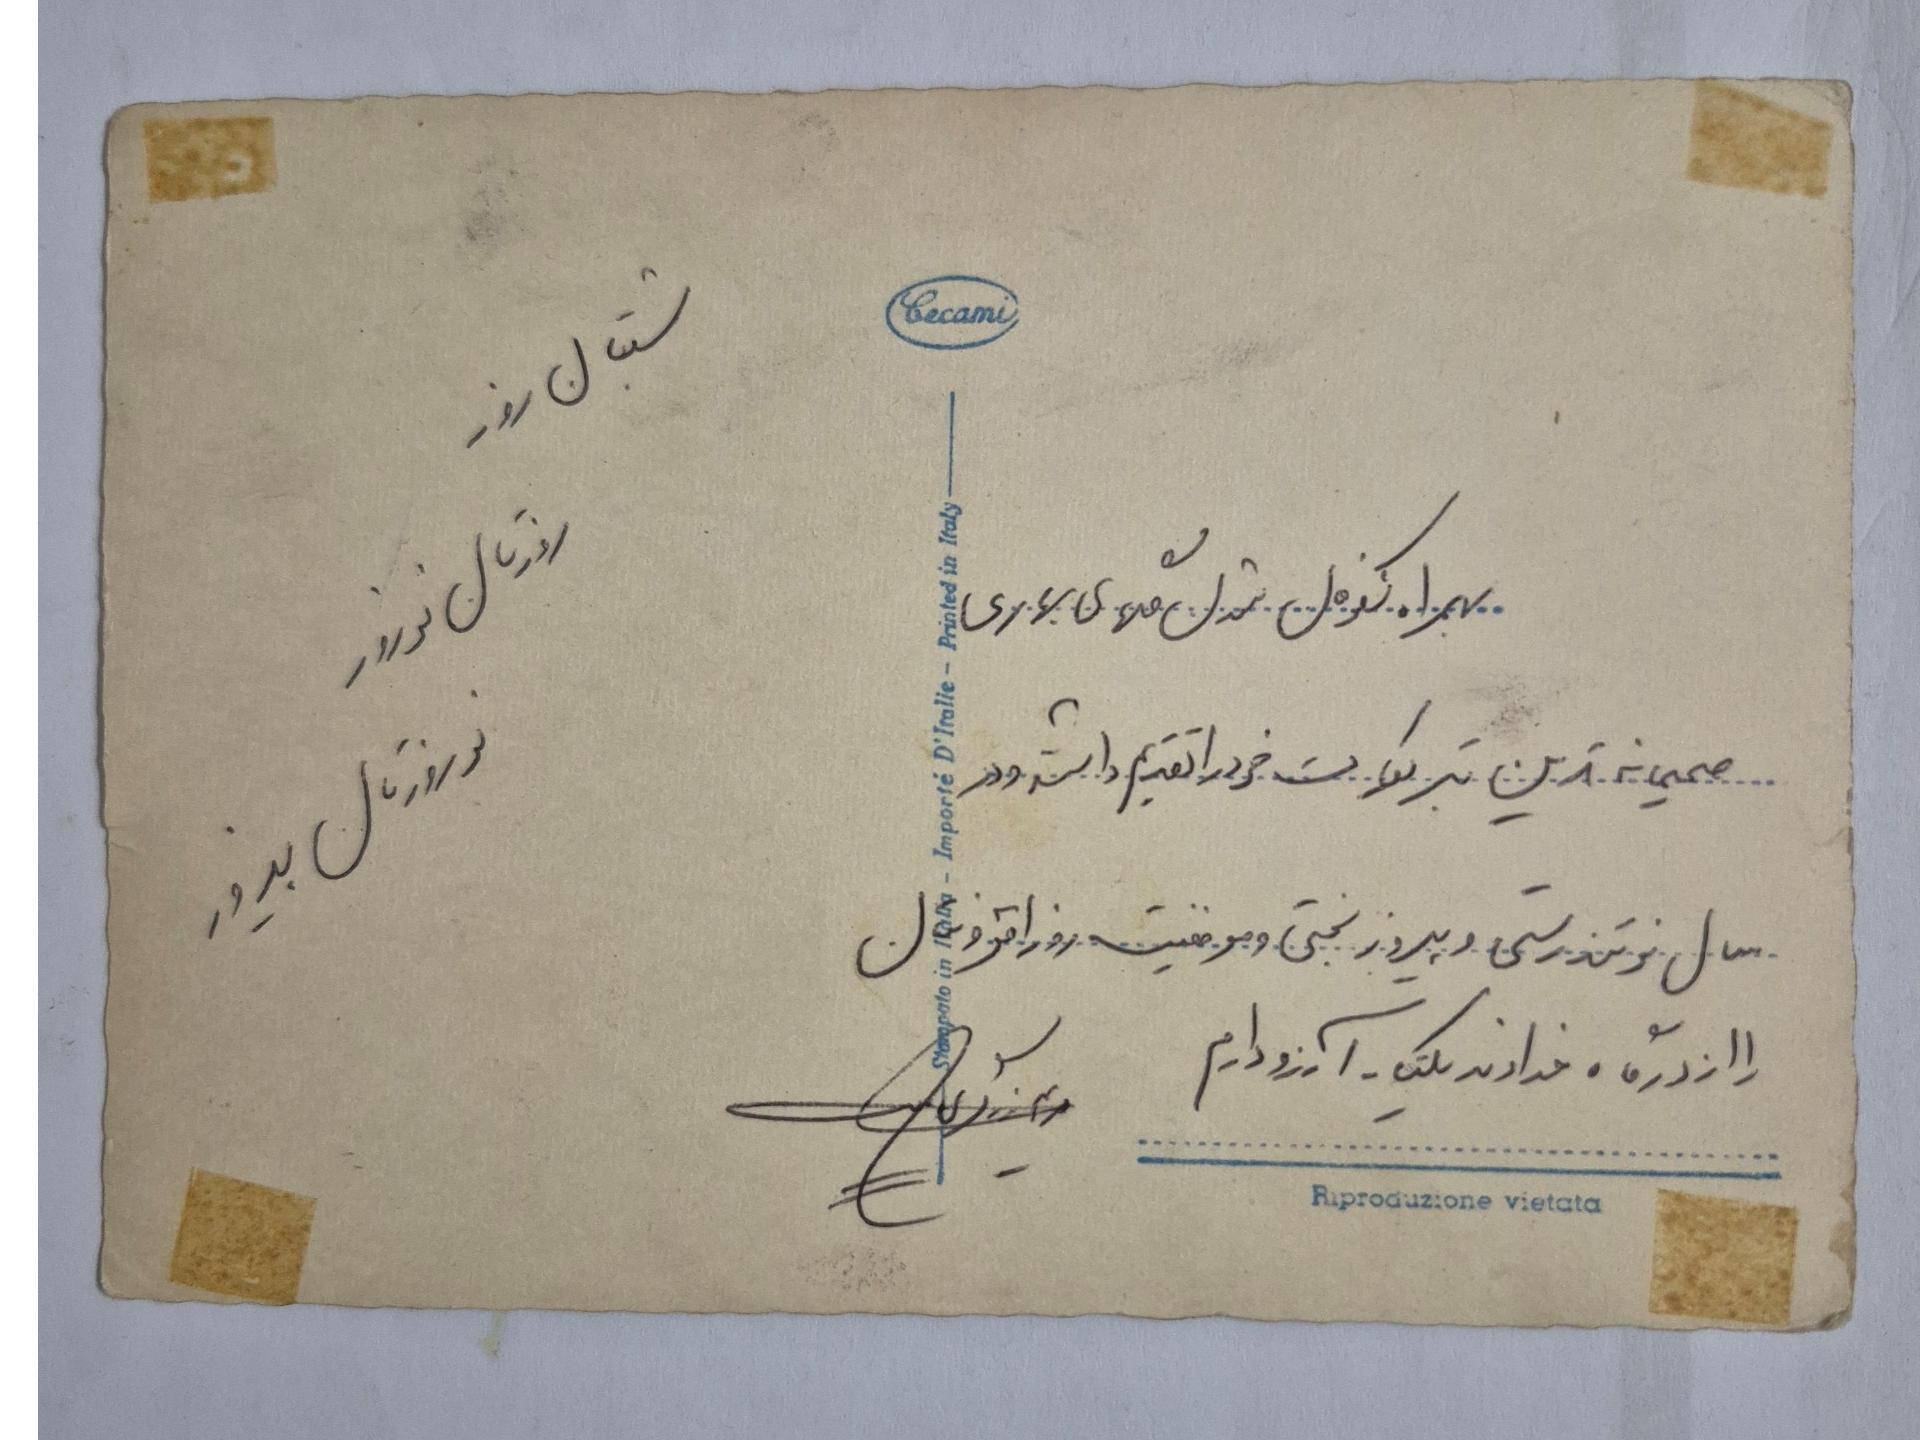 شبتان روز
روزتان نوروز
نوروزتان پیروز
Cecami
Stampato in Italia – Importé D'Italie – Printed in Italy
بهمراه شکوفه های بهاری
صمیمانه ترین تبریکات خود را تقدیم داشته و در
سال نو تندرستی و پیروزبختی و موفقیت روز افزونتان
را از درگاه خداوند یکتا آرزو دارم
Riproduzione vietata